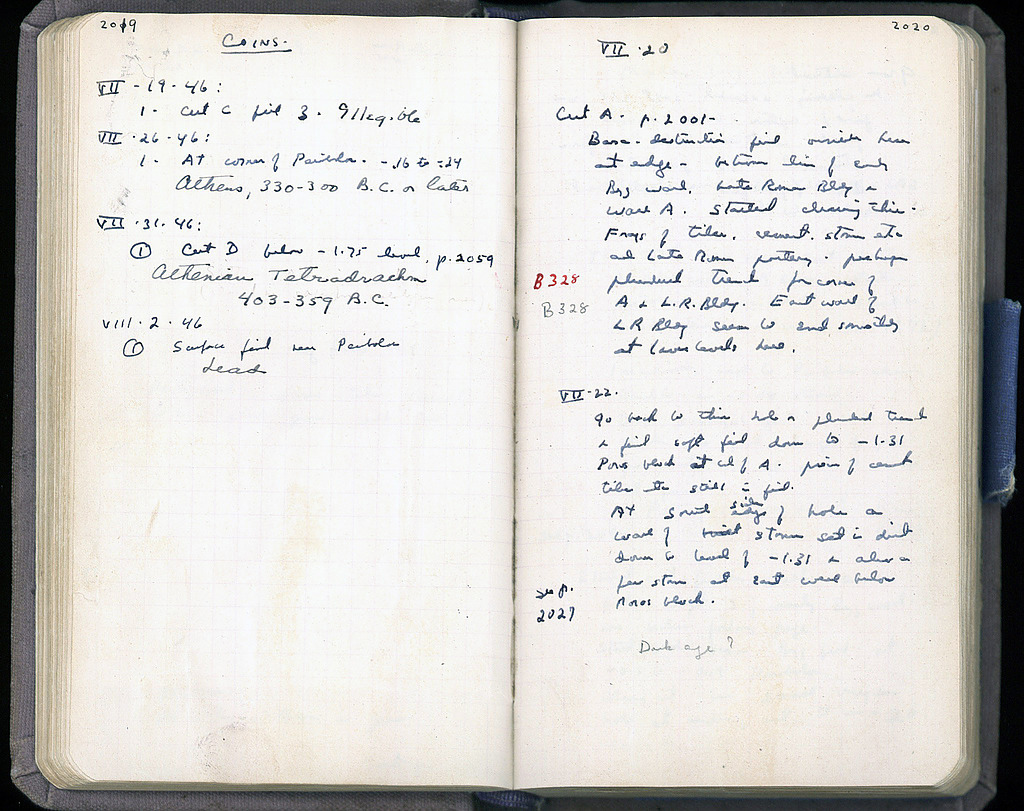 2019
COINS.
VII - 19 - 46 :
1 - Cut C fill 3 . Illegible
VII . 26 . 46 :
1 - At corner of Peribolos. - .16 to -.24
Athens, 330-300 B.C. or later
VII . 31 . 46 :
① Cut D below - 1.75 level, p. 2059
Athenian Tetradrachm
403-359 B.C.
VIII . 2 . 46
① Surface find near Peribolos
Lead
2020
VII . 20
Cut A . p. 2001 -
fill here
at edge - between line of early
Byz wall, Late Roman Bldg &
Wall A. Started clearing this .
Frags of tiles, cement, stone etc
and Late Roman pottery . perhaps
plundered trench for corner of
B328
A & L.R. Bldg. East wall of
B328
L R Bldg seems to end
at lower levels here.
VII . 22 .
Go back to this hole or plundered trench
& find soft fill down to - 1.31
Poros block at of A . pieces of
tiles etc still in fill.
At south side of hole a
wall of stones set in dirt
down to level of - 1.31 & also a
few stones at east well below
Poros block .
see p.
2027
Dark age ?